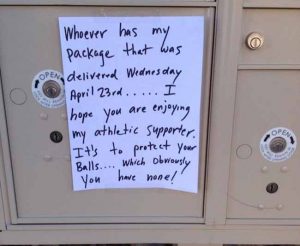 Whoever has my
package that was
delivered Wednesday
April 23rd..... I
hope you are enjoying
my athletic supporter.
It's to protect your
Balls.... Which obviously
you have none!
OPEN
OPEN